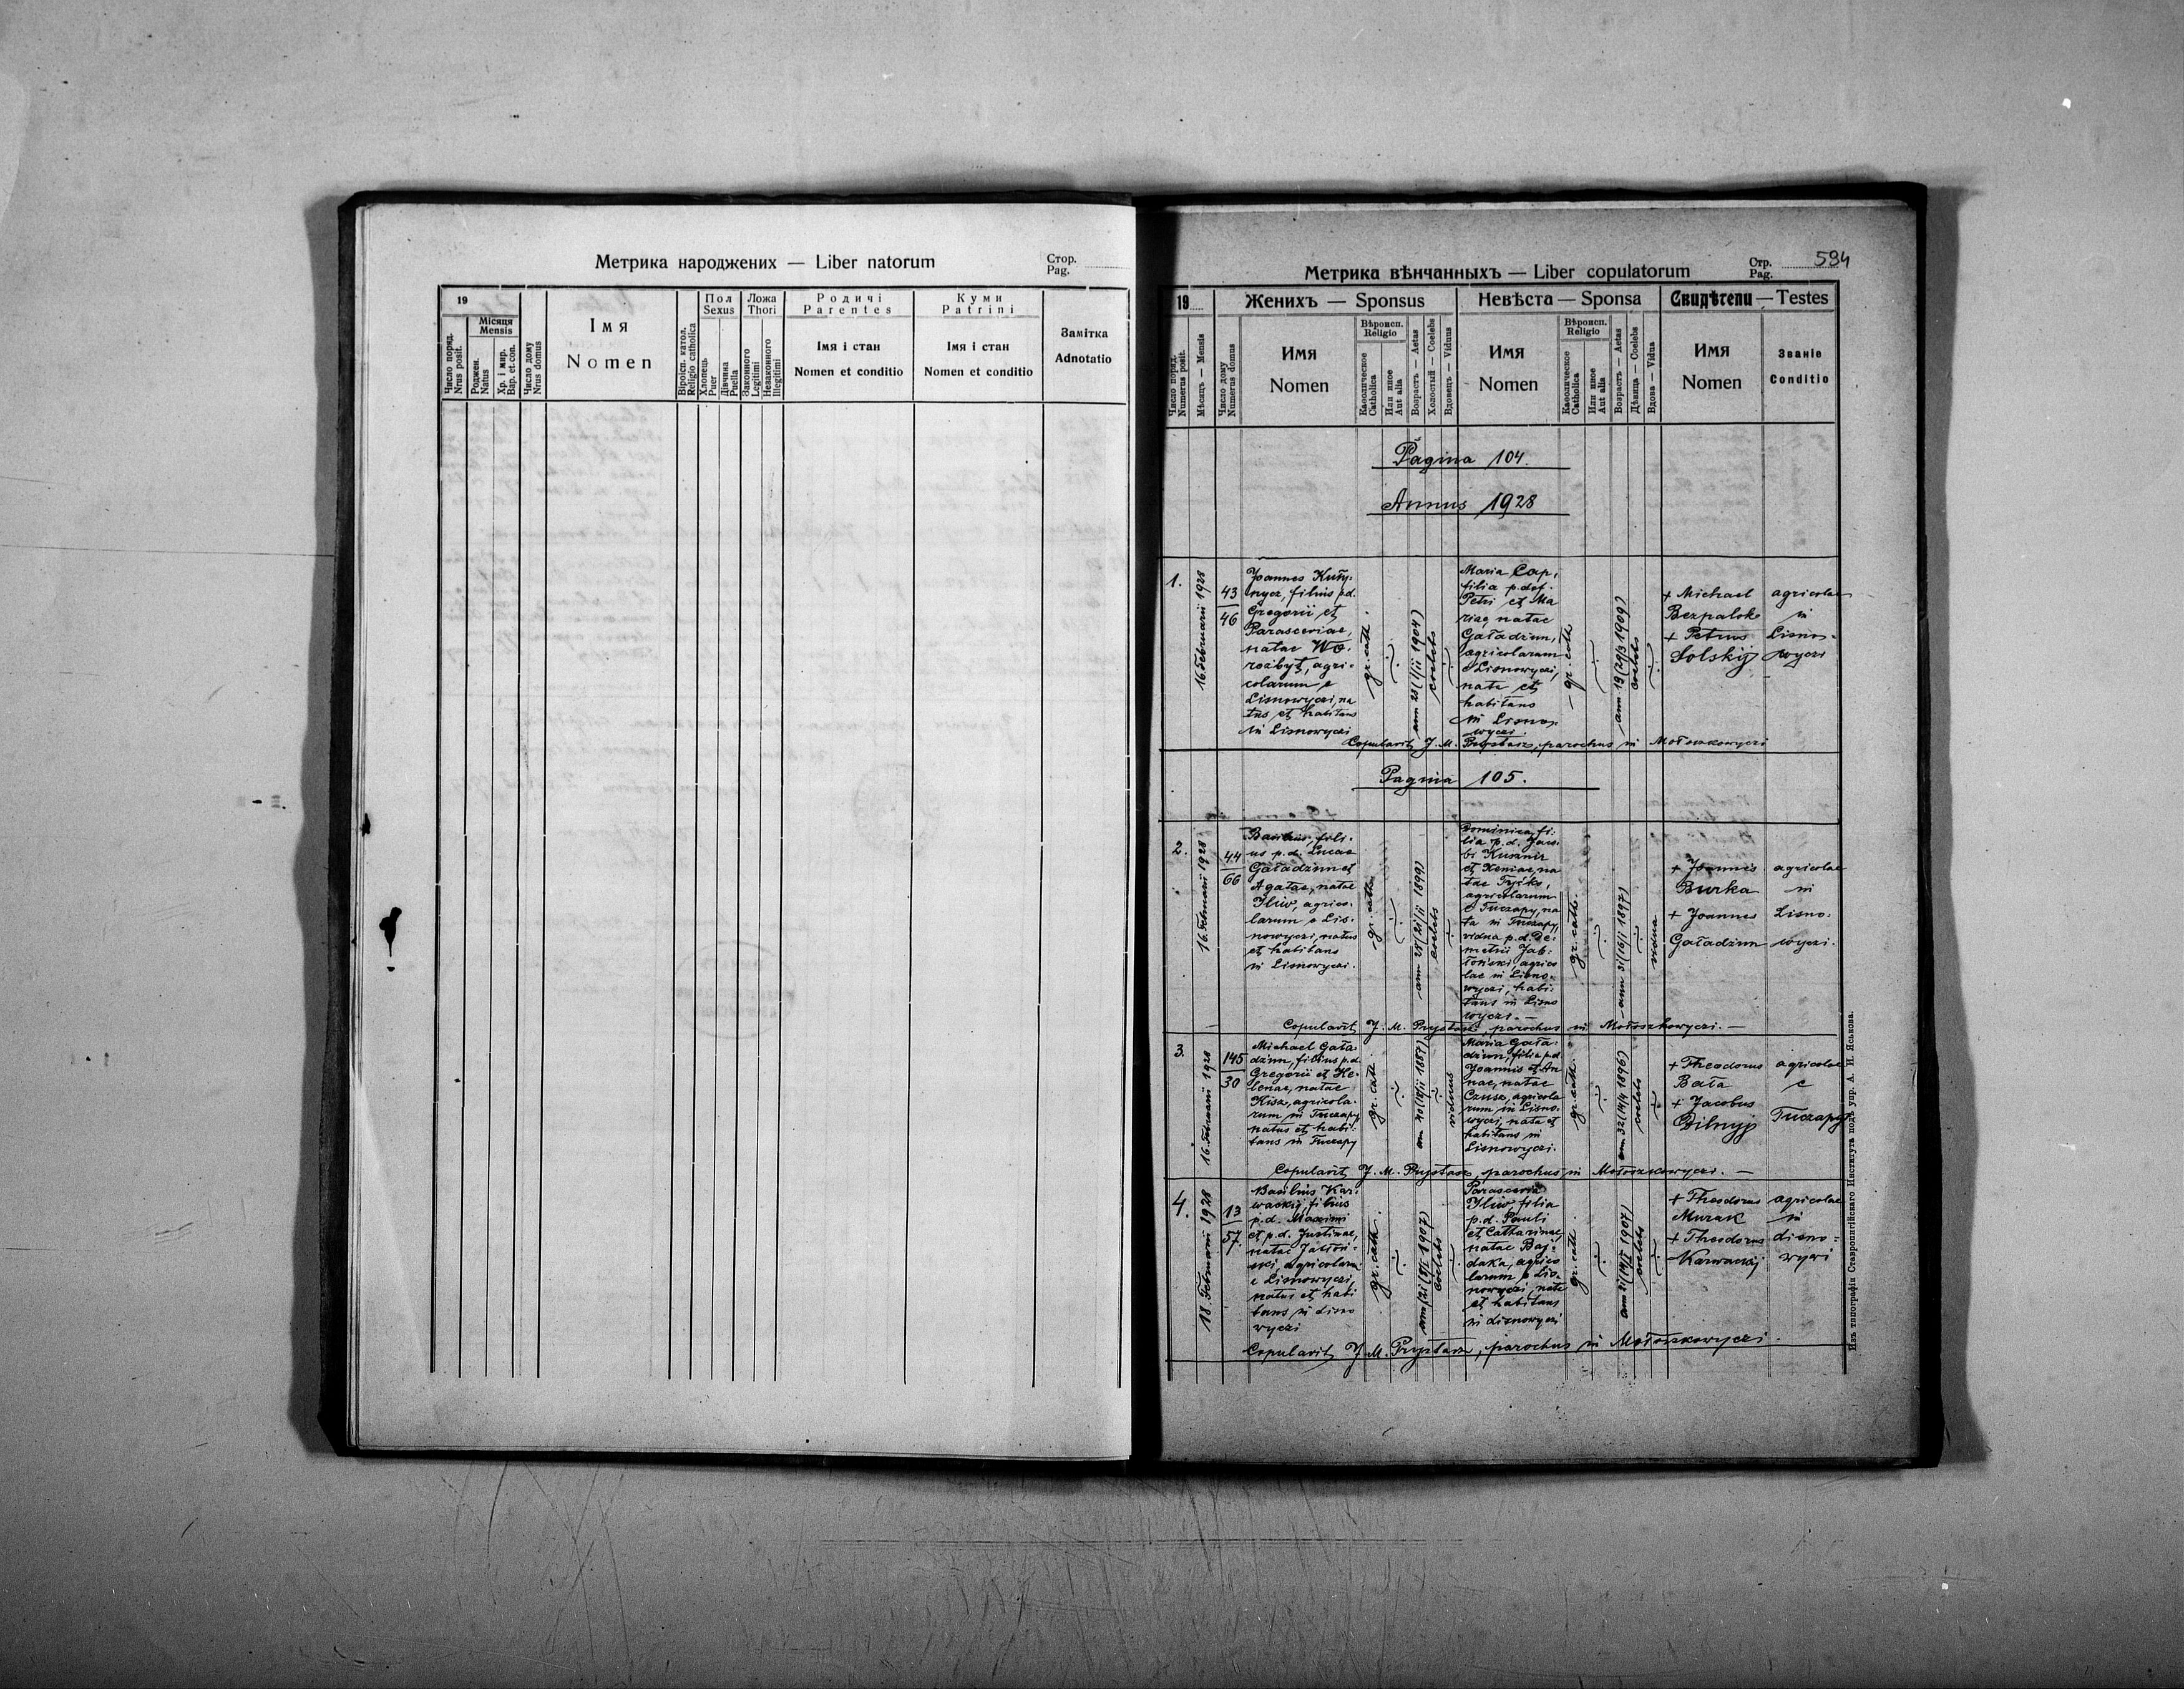 Метрика народжених — Liber natorum
Стор.
Pag.
19
Місяця
Mensis
Число поряд.
Nrus posit.
Роджен.
Natus
Хр. і мир.
Bap. et. con.
Число дому
Nrus domus
Імя
Nomen
Віроісп. катол.
Religio catholica
Пол
Sexus
Хлопець
Puer
Дівчина
Puella
Ложа
Thori
Законного
Legitimi
Незаконного
Illegitimi
Родичі
Parentes
Імя і стан
Nomen et conditio
Куми
Patrini
Імя і стан
Nomen et conditio
Замітка
Adnotatio
Метрика вѣнчанныхъ — Liber copulatorum
Стр.
Pag.
594
19
Число поряд.
Numerus posit.
Мѣсяцъ — Mensis
Число дому
Numerus domus
Женихъ — Sponsus
Имя
Nomen
Вѣроисп.
Religio
Каѳолическое
Catholica
Или иное
Aut alia
Возрастъ — Aetas
Холостый — Coelebs
Вдовецъ — Viduus
Невѣста — Sponsa
Имя
Nomen
Вѣроисп.
Religio
Каѳолическое
Catholica
Или иное
Aut alia
Возрастъ — Aetas
Дѣвица — Coelebs
Вдова — Vidua
Свидѣтели — Testes
Имя
Nomen
Званіе
Conditio
Pagina 104.
Annus 1928
1.
16 Februarii 1928
43
46
Joannes
filius p.d.
Gregorii et
Parasceviae,
natae Wo-
rozbyt, agri-
colarum e
Lisnowyczi, na
tus et habitans
in Lisnowyczi
gr. cath.
coelebs
Maria Cap,
filia p.def.
Petri et Ma
riae, natae
Gaładżun,
agricolarum
e Lisnowyczi,
nata et
habitans
in Lisno-
wyczi.
gr. cath
ann 19 (29/3 1909)
coelebs
+ Michael
Bezpalko
+ Petrus
Solskij
agricolae
in
Lisno-
wyczi
Copulavit J. M. Prystasz, parochus in Mołoszkowyczi
Pagina 105.
2.
16. Februarii 1928
44
66
Basilius, fili-
us p.d. Lucae
Gaładżun et
Agatae, natae
Iliw, agrico-
larum e Lis-
nowyczi, natus
et habitans
in Lisnowyczi.
gr. cath.
coelebs
Dominica, fi-
lia p.d. Jaco-
bi Kusznir
et Xeniae, na
tae
agricolarum
e Tuczapy, na
ta in Tuczapy,
vidua p.d. De-
metrii Jab-
łoński agrico
lae in Lisno-
wyczi, habi-
tans in Lisno
wyczi. —
gr. cath.
vidua
+ Joannes
Burka
+ Joannes
Gaładżun
agricolae
in
Lisno-
wyczi.
Copulavit J. M. Prystasz, parochus in Mołoszkowyczi. —
3.
16. Februarii 1928
145
30
Michael Gała-
dżun, filius p.d.
Gregorii et He-
lenae, natae
Kisz, agricola-
rum in Tuczapy
natus et habi-
tans in Tuczapy
gr. cath.
viduus
Maria Gała-
dżun, filia p.d.
Joannis et An
nae, natae
Czusz, agricola
rum in Lisno-
wyczi, nata et
habitans in
Lisnowyczi.
gr. cath.
coelebs
+ Theodorus
Bała
+ Jacobus
Dilnyj
agricolae
e
Tuczapy
Copulavit J. M. Prystasz, parochus in Mołoszkowyczi. —
4.
18. Februarii 1928
13
57.
Basilius Kar-
wackij, filius
p.d. Maximi
et p.d. Justinae,
natae Jabłoń-
ski, agricolarum
e Lisnowyczi,
natus et habi
tans in Lisno
wyczi
gr. cath.
coelebs
Parascevia
Iliw, filia
p.d. Pauli
et Catharinae,
natae Baj-
daka, agrico
larum e Lis-
nowyczi, nata
et habitans
in Lisnowyczi
gr. cath
coelebs
+ Theodorus
Murak
+ Theodorus
Karwackij
agricolae
in
Lisno-
wyczi
Copulavit J. M. Prystasz, parochus in Mołoszkowyczi.
Изъ типографіи Ставропигійскаго Института подъ упр. А. И. Яськова.